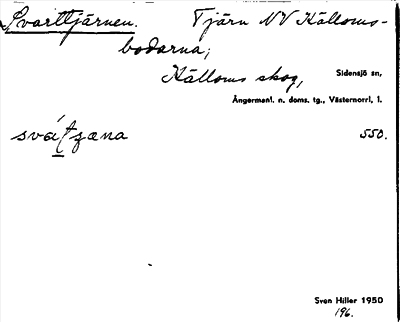 Svarttjärnen. Tjärn NV Källoms-
bodarna;
Källoms skog, Sidensjö sn,
Ångermanl. n. doms. tg., Västernorrl. l.
svátʒæna 550.
Sven Hiller 1950
196.